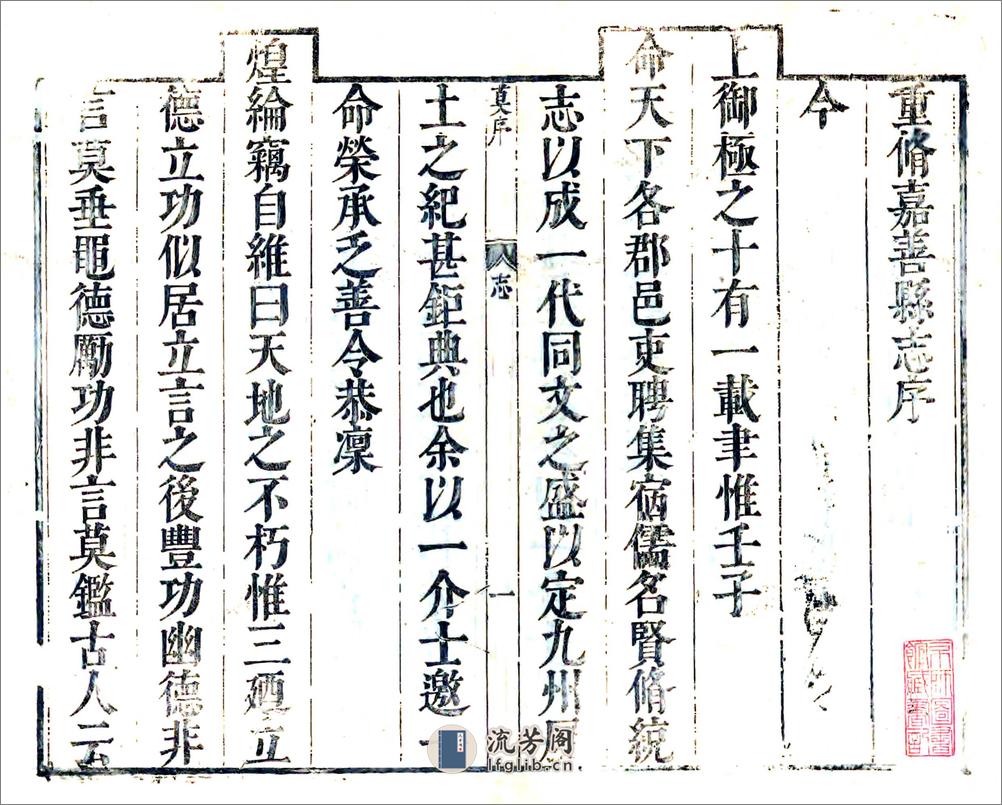 重脩嘉善縣志序
今
上御極之十有一載聿惟壬子
命天下各郡邑吏聘集宿儒名賢脩統
志以成一代同文之盛以定九州
莫序
志
一
土之紀甚鉅典也余以一介士邀
命榮承乏善令恭凜
煌綸竊自維曰天地之不朽惟三廼立
德立功似居立言之後豐功幽德非
言莫垂黽德勵功非言莫鑑古人云
流芳阁
lfglib.cn